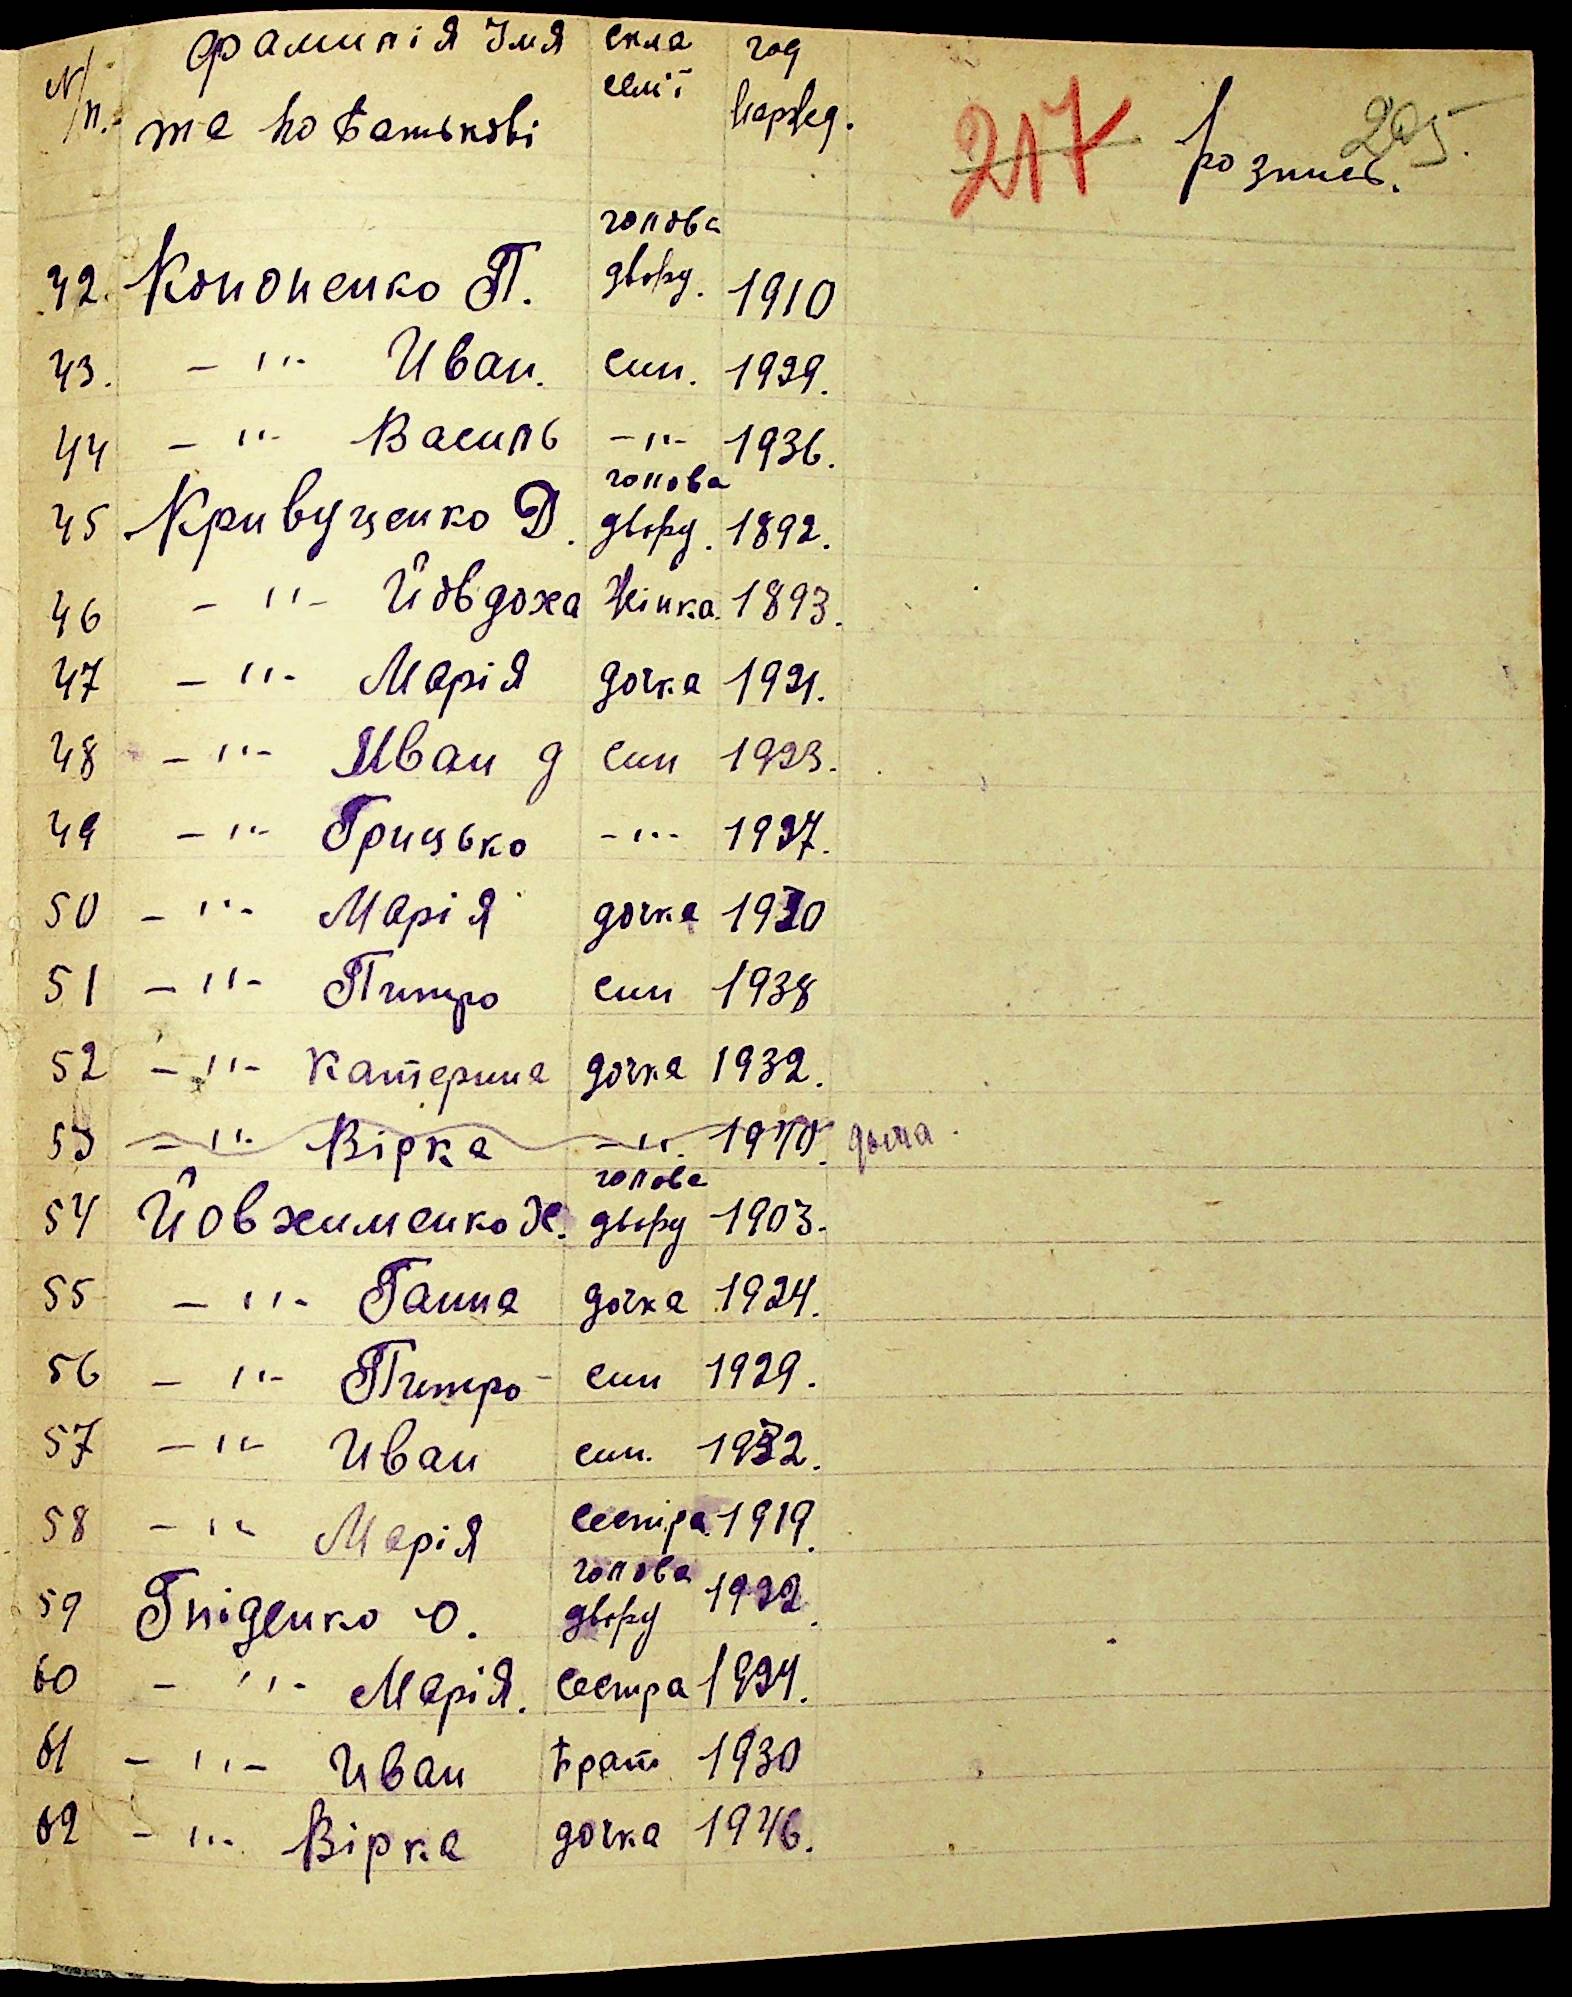 N/п. Фамилія Імя скла год
та по батькові семї наржд. 217 Розпись. 205
42. Кононенко П. голова двору. 1910
43. – " – Иван. син. 1929.
44 – " – Василь – " – 1936.
45 Кривущенко Д. голова двору. 1892.
46 – " – Йовдоха жінка. 1893.
47 – " – Марія дочка 1921.
48 – " – Иван д син 1923.
49 – " – Грицько – " – 1927.
50 – " – Марія дочка 1930
51 – " – Питро син 1938
52 – " – Катерина дочка 1932.
53 – " – Вірка – " – 1940.
54 Йовхименко Х. голова двору 1903.
55 – " – Ганна дочка 1924.
56 – " – Питро – син 1929.
57 – " – Иван син. 1932.
58 – " – Марія сестра 1919.
59 Гніденко О. голова двору 1922.
60 – " – Марія. сестра 1924.
61 – " – Иван брат 1930
62 – " – Вірка дочка 1946.